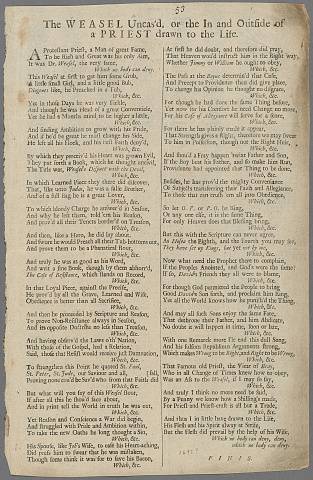 53
The WEASEL Uncas'd, or the In and Outside of
a PRIEST drawn to the Life.
A Protestant Priest, a Man of great Fame,
To be Rich and Great was his only Aim,
It was Dr. Weesel, the very same,
Which no body can deny.
This Weasel at first to get him some Grub,
A little small Girl, and a little good Bub,
Diogenes like, he Preached in a Tub,
Which, &c.
Yet in those Days he was very
And though he was Head of a great Conventicle,
Yet he had a Months mind to be higher a little,
Which, &c.
And finding Ambition to grow with his Pride,
And if he'd be great he must change his Side,
He left all his Flock, and his Tub
Which, &c.
By which they perceiv'd his Heart was grown Evil,
They put forth a Book, which he thought uncivil,
The Title was, Weasel's
Which, &c.
In which Learned Piece they there did discover,
That, like unto Judas, he was a false Brother,
And of a full Bag he is a great Lover,
Which, &c.
To which bloody Charge he answer'd in Season,
And why he left them, told 'em his Reason,
And prov'd all their Tenets border'd on Treason,
Which, &c.
And then, like a Hero, he did lay about,
And swore he would Preach all their Tub-bottoms out,
And prove them to be a Phanatical Rout,
Which, &c.
And truly he was as good as his Word,
And writ a fine Book, though by them abhorr'd,
The Case of Resistance, which stands on Record,
Which, &c.
In that Loyal Piece, against the Presses,
He prov'd by all the Graces, Maid and Wife,
Obedience is better than all Sacrifice,
Which, &c.
And then he proceeded by Scripture and Reason,
To prove Non-Resistance always in Season,
And its opposite Doctrine no less than Treason,
Which, &c.
And having obliev'd the Laws of old Nation,
With those of the Gospel, had a Relation,
Said, those that Resist would receive just Damnation,
Which, &c.
To strengthen this Point he quoted St. Paul,
St. Peter, St. Jude, our Saviour and all,
Proving none cou'd be Sav'd who from that Faith did fall
Which, &c.
But what will you say of this Weasel stout,
If after all this he shou'd face about,
And in print tell the World in truth he was out,
Which, &c.
Yet Reason and Conscience a War did begin,
And struggled with Pride and Ambition within
To take the new Oaths he long thought a Sin,
Which, &c.
His Spouse, like Job's Wife, to ease his Heart-aching,
Did press him to swear that he was mistaken,
Though some think it was for to save his Bacon,
Which, &c.
At first he did doubt, and therefore did pray,
That Heaven would instruct him in the Right way,
Whether Jemmy or William he ought to obey,
Which, &c.
The Pass at the Boyne determin'd that Case,
And Precept to Providence then did give place,
To change his Opinion he thought no disgrace,
Which, &c.
For though he had done the same Thing before,
Yet now for his Comfort he need Change no more,
For his Case of Allegiance will serve for a score,
Which, &c.
For there he has plainly made it appear,
That Strength gives a Right, therefore we may swear
To him in Possession, though not the Right Heir,
Which, &c.
And shou'd a Fray happen 'twixt Father and Son,
If the Boy beat his Father, and so make him Run,
Providence had appointed that Thing to be done,
Which, &c.
Besides, he has prov'd the mighty Convenience
Of Subjects transferring their Faith and Allegiance,
To those that can truth 'em all into Obedience,
Which, &c.
So let O. P. or P. O. be King,
Or any one else, it is the same Thing,
For only Heaven does that Blessing bring,
Which, &c.
But this with the Scripture can never agree,
As Hosea the Eighth, and the Fourth you may see,
They have set up Kings, but yet not by me,
Which, &c.
Now what need the Prophet there to complain,
If the Peoples Anointed, and God's were the same?
If so, Jewish Priests they all were to blame,
Which, &c.
For though God permitted the People to rebel,
Good David's Son forth, and proclaim him King,
Yet all the World knows how he punish'd the Thing,
Which, &c.
And may all such Sons enjoy the same Fate,
That dethrone their Father, and him Abdicate,
No doubt it will happen in time, soon or late,
Which, &c.
With one Remark more I'le end this dull Song,
And his falshion Republican Arguments strong,
Which makes Wrong to be Right, and Right to be Wrong,
Which, &c.
That Famous old Priest, the Vicar of Bray,
Who in all Change of Times knew how to obey,
Was an Ass to the Weasel, if I may so say,
Which, &c.
And truly I think no more need be said,
By a Penny we know how a Shilling's made,
For Priest and Priest-craft is all but a Trade,
Which, &c.
And thus I in little have drawn to the Life,
His Flesh and his Spirit always at Strife,
But the Flesh did prevail by the help of his Wife,
Which no body can deny, deny,
which no body can deny.
1691?
FINIS.